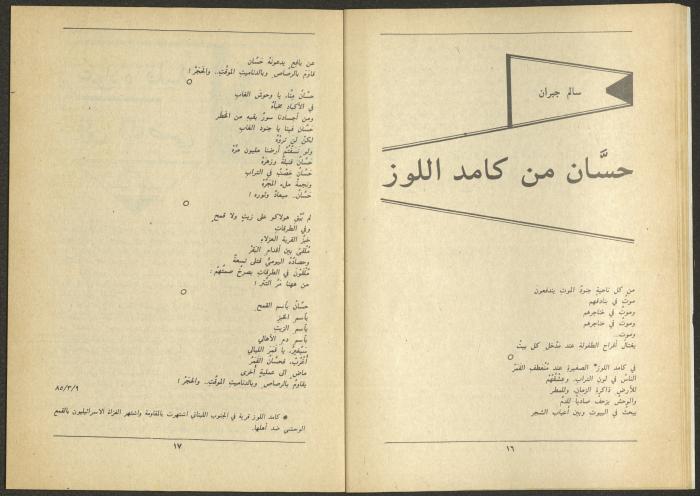 سالم جبران
حسَّان من كامد اللوز
من كل ناحيةٍ جنودُ الموتِ يندفعون
موتٌ في بنادقهم
وموتٌ في خناجرهم
وموتٌ في حناجرهم
وموت..
يغتال أفراح الطفولة عند مدخل كل بيتْ
في كامد اللوز* الصغيرةِ عند منعطفِ القمرْ
الناسُ في لون الترابِ.. وعشقُهُمْ
للأرضِ ذاكرةِ الزمانِ.. وللمطر
والوحشُ يزحف صادياً للدمِّ
يبحث في البيوت وبين أعتاب الشجر
١٦
عن يافعٍ يدعونهُ حَسَّان
قاومَ بالرصاص وبالديناميتِ الموقّتِ.. والحَجَرْ !
حسَّانُ مِنَّا، يا وحوش الغابِ
في الأكبادِ مخبأُهُ
ومن أجسادنا سورٌ يقيه من الخطر
حسَّانُ فينا يا جنود الغاب
لكنْ لن تروْهُ
ولو نسفتُمْ أرضنا مليون مرَّهْ
حَسَّانُ قنبلةٌ وزهرهْ
حَسَّانُ خِصْبٌ في الترابِ
ونجمةٌ ملء المجرَّهْ
حَسَّانُ.. ميعادٌ وثوره !
لم يُبْقِ هولاكو على زيتٍ ولا قمحٍ
وفي الطرقاتِ
خبزُ القريةِ العزلاءِ
مُلْقىً بين أقدامِ البَقَرْ
وحصادُهُ اليوميُّ قتلى تسعةٌ
مُلْقَوْنَ في الطرقاتِ يصرخُ صمتُهُمْ :
من ههنا مَرَّ التَّتَرْ !
حسَّانُ باسم القمحِ
باسمِ الخبزِ
باسمِ الزيتِ
باسمِ دمِ الأهالي
يا قمرَ الليالي
أُغْرُبْ، فحسَّانُ القمرْ
ماضٍ الى عمليةٍ أُخرى
يقاومُ بالرصاصِ وبالديناميتِ الموقّتِ.. والحَجَرْ !
٨٥/٣/٩
* كامد اللوز قرية في الجنوب اللبناني اشتهرت بالمقاومة واشتهر الغزاة الاسرائيليون بالقمع
الوحشي ضد أهلها.
١٧